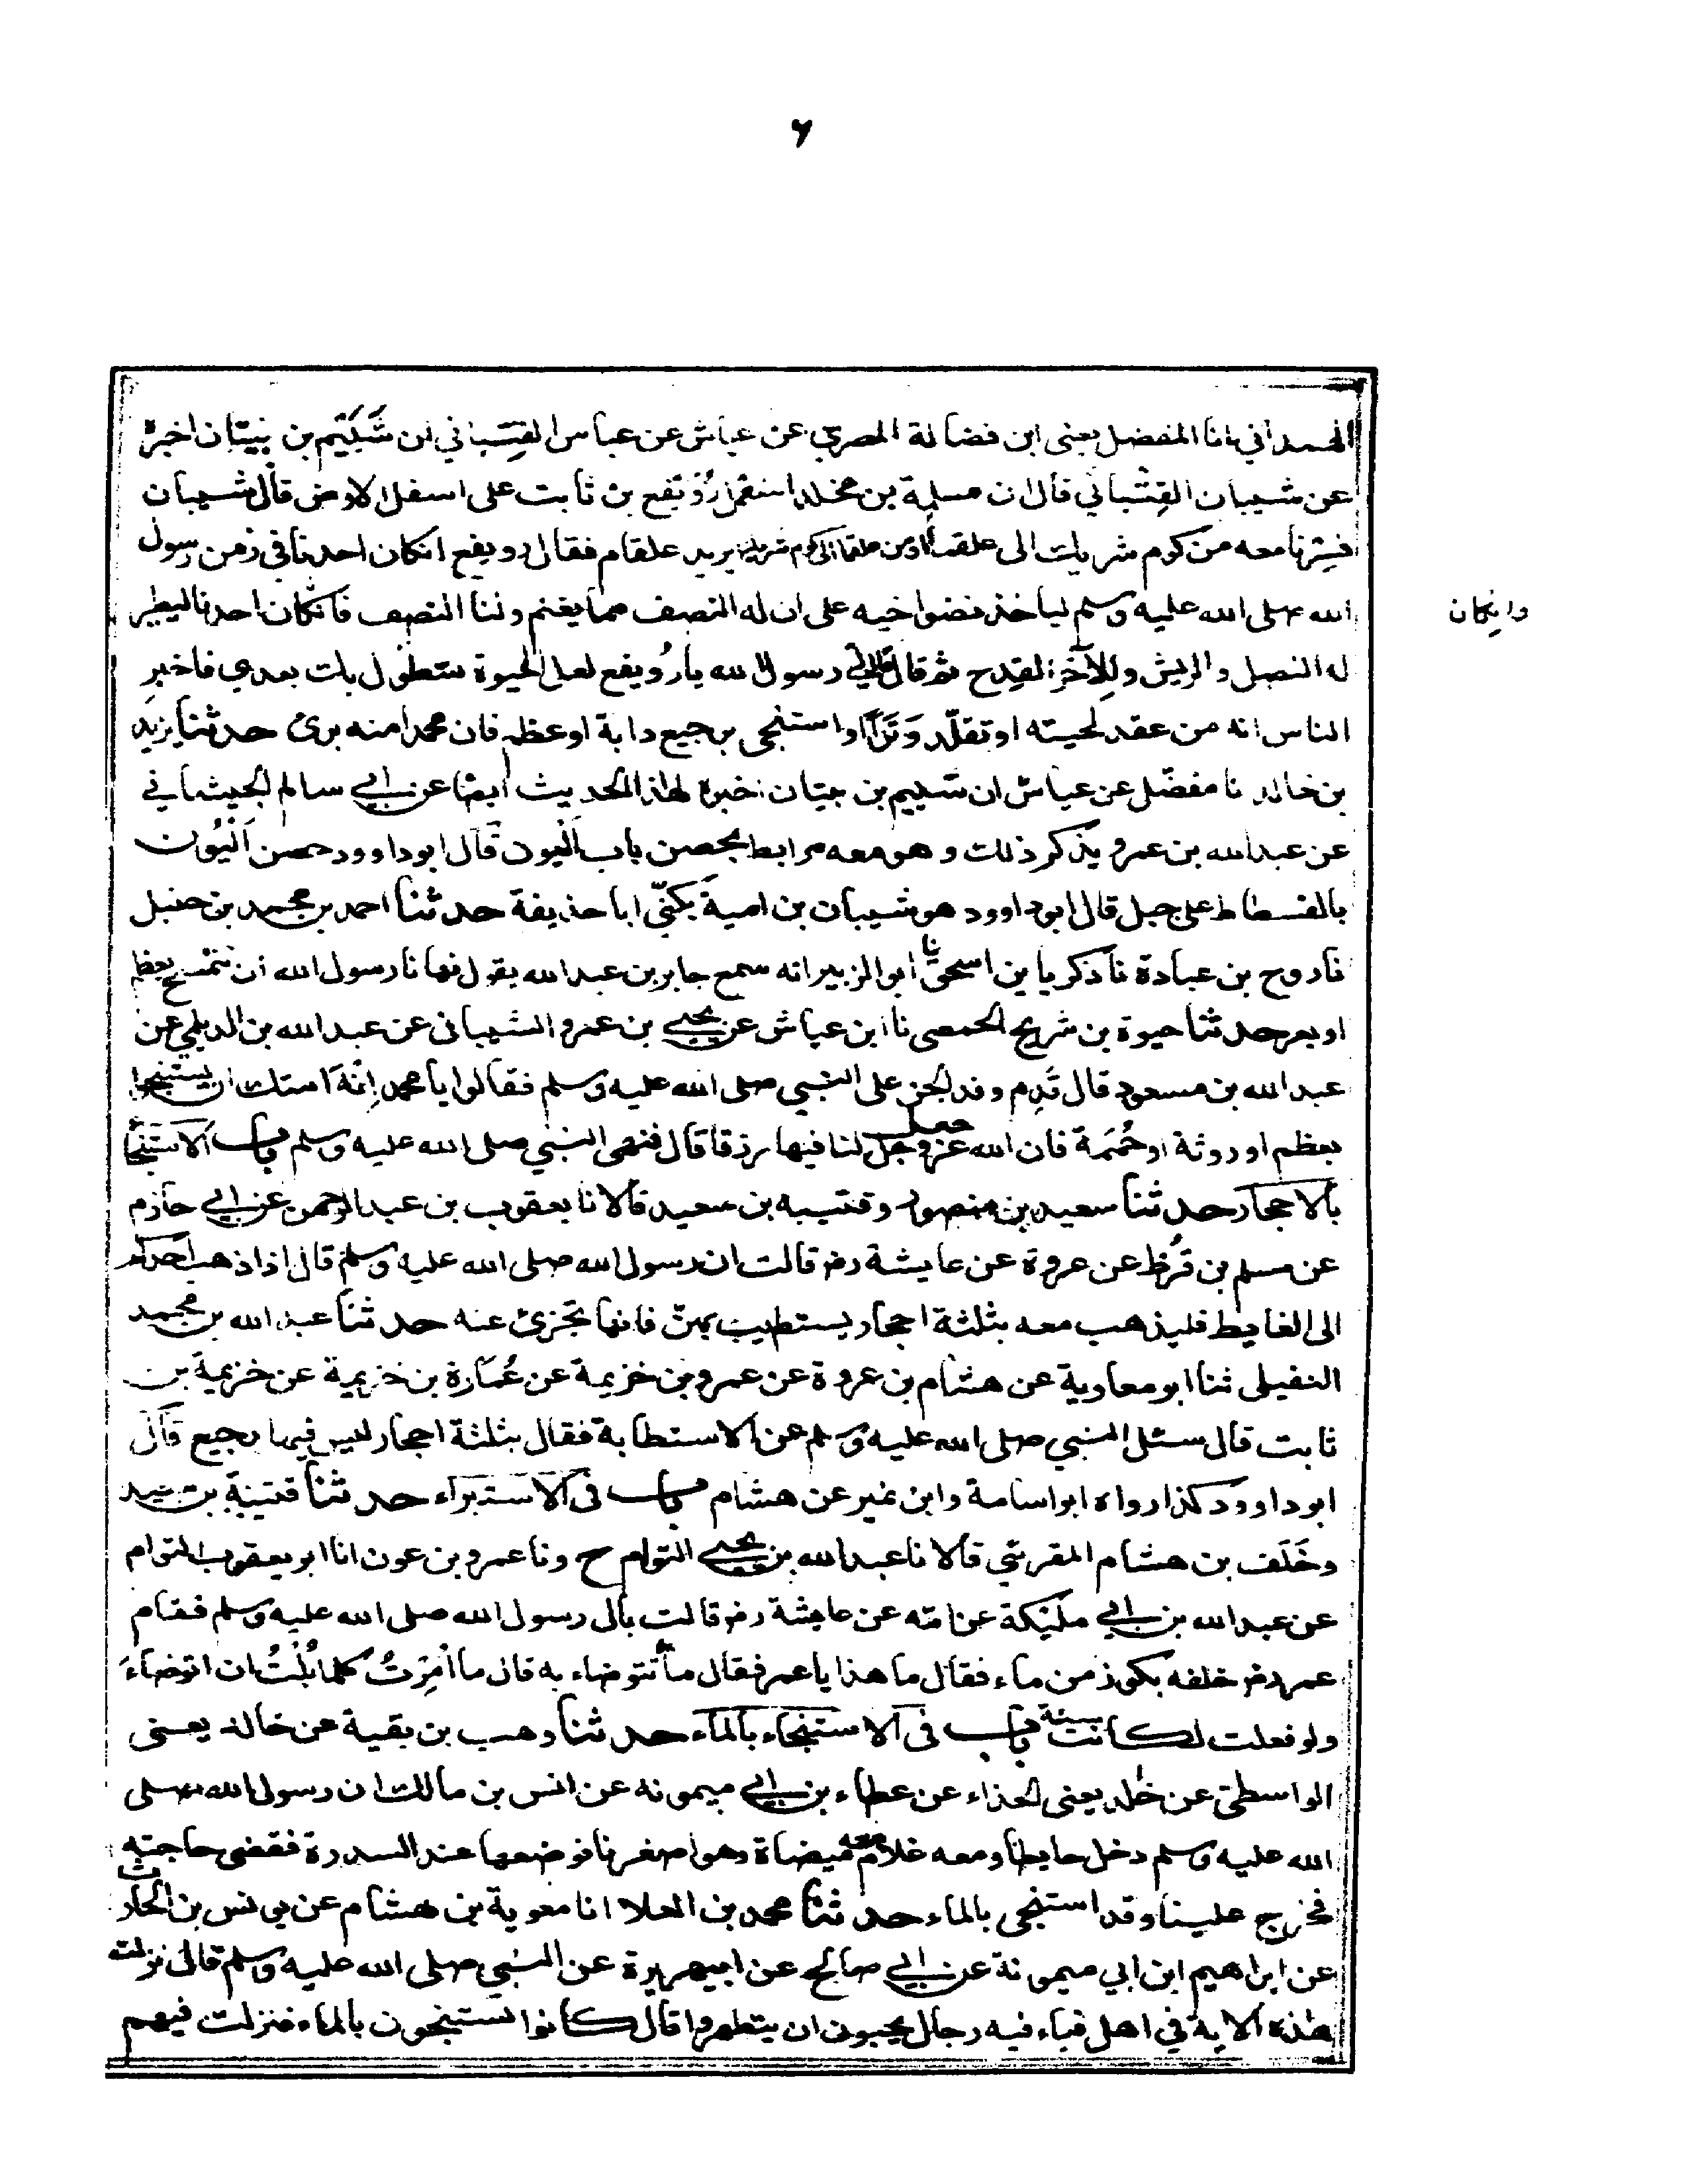 ٦
الهمداني انا المفضل يعنى ابن فضالة المصري عن عياش عن عباس القِتباني ان شَيَيْم بن بيتان اخبره
عن شيبان القِتْباني قال ان مسلمة بن مخلد استعمل رُوَيفع بن ثابت على اسفل الارض قال شيبان
فسِرْنا معه من كوم شريك الى علقما او من علقما الى كوم شريك يريد علقام فقال رويفع انكان احدنا في زمن رسول
الله صلى الله عليه وسلم لياخذ نضوا خيه على ان له النصف مما يغنم ولنا النصف فانكان احدنا ليطير
وانكان
له النصل والريش وللآخر القِدح ثم قال قال لي رسول الله يا رُويفع لعل الحيوة ستطول بك بعدي فاخبر
الناس انه من عقد لحيته او تقلّد وَتَرًا او استنجى برجيع دابة او عظم فان محمدا منه برئ حدثنا يزيد
بن خالد نا مفضّل عن عياش ان شييم بن بيتان اخبره بهذا الحديث ايضا عن ابي سالم الجيشاني
عن عبد الله بن عمرو يذكر ذلك وهو معه مرابط بحصن باب اليون قال ابو داوود حصن اَلْيُون
بالفسطاط على جبل قال ابو داوود هو شيبان بن امية يكنّى ابا حذيفة حدثنا احمد بن محمد بن حنبل
نا روح بن عبادة نا زكريا بن اسحق نا ابو الزبير انه سمع جابر بن عبد الله يقول نهانا رسول الله ان نتمسح بعظم
او بعر حدثنا حيوة بن شريح الحمصى نا ابن عياش عن يحيى بن عمرو الشيباني عن عبد الله بن الديلمي عن
عبد الله بن مسعود قال قَدِم وفد الجن على النبي صلى الله عليه وسلم فقالوا يا محمد اِنْهَ امتك ان يستنجوا
بعظم او روثة او حُمَمَة فان الله عز وجل جعل لنا فيها رزقا قال فنهى النبي صلى الله عليه وسلم باب الاستنجاء
بالاحجار حدثنا سعيد بن منصور وقتيبه بن سعيد قالا نا يعقوب بن عبد الرحمن عن ابي حازم
عن مسلم بن قُرْظ عن عروة عن عايشة رض قالت ان رسول الله صلى الله عليه وسلم قال اذا ذهب احدكم
الى الغايط فليذهب معه بثلثة احجار يستطيب بهنّ فانها تجزئ عنه حدثنا عبد الله بن محمد
النفيلى ثنا ابو معاوية عن هشام بن عروة عن عمرو بن خزيمة عن عُمَارة بن خزيمة عن خزيمة بن
ثابت قال سئل النبي صلى الله عليه وسلم عن الاستطابة فقال بثلثة احجار ليس فيها رجيع قال
ابو داوود كذا رواه ابو اسامة وابن نمير عن هشام باب فى الاستبراء حدثنا قتيبة بن سعيد
وخَلَف بن هشام المقرئي قالا نا عبد الله بن يحيى التوام ح ونا عمرو بن عون انا ابو يعقوب التوام
عن عبد الله بن ابي مليكة عن امّه عن عايشة رض قالت بال رسول الله صلى الله عليه وسلم فقام
عمر رض خلفه بكوز من ماء فقال ما هذا يا عمر فقال ماء تتوضاء به قال ما اُمِرْتُ كلما بُلْتُ ان اتوضاءَ
ولو فعلت لكانت سنة باب فى الاستنجاء بالماء حدثنا وهب بن بقية عن خالد يعنى
الواسطى عن خلد يعنى الحذاء عن عطاء بن ابي ميمونه عن انس بن مالك ان رسول الله صلى
الله عليه وسلم دخل حايطا ومعه غلام معه ميضاة وهو اصغرنا فوضعها عند السدرة فقضى حاجته
فخرج علينا وقد استنجى بالماء حدثنا محمد بن العلا انا معوية بن هشام عن يونس بن الحارث
عن ابراهيم ابن ابي ميمونة عن ابي صالح عن ابيهريرة عن النبي صلى الله عليه وسلم قال نزلت
هذه الاية في اهل قباء فيه رجال يحبون ان يتطهروا قال كانوا يستنجون بالماء فنزلت فيهم